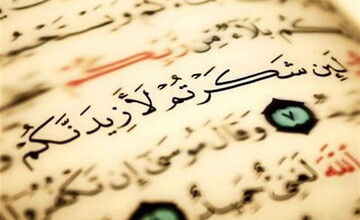 كم بلاء من ربكم
لَئِن شَكَرْتُمْ لَأَزِيدَنَّكُمْ
٧ وَقَالَ مُوسَى إِن تَكْفُرُوا
اللَّهَ لَغَنِيٌّ حَمِيدٌ